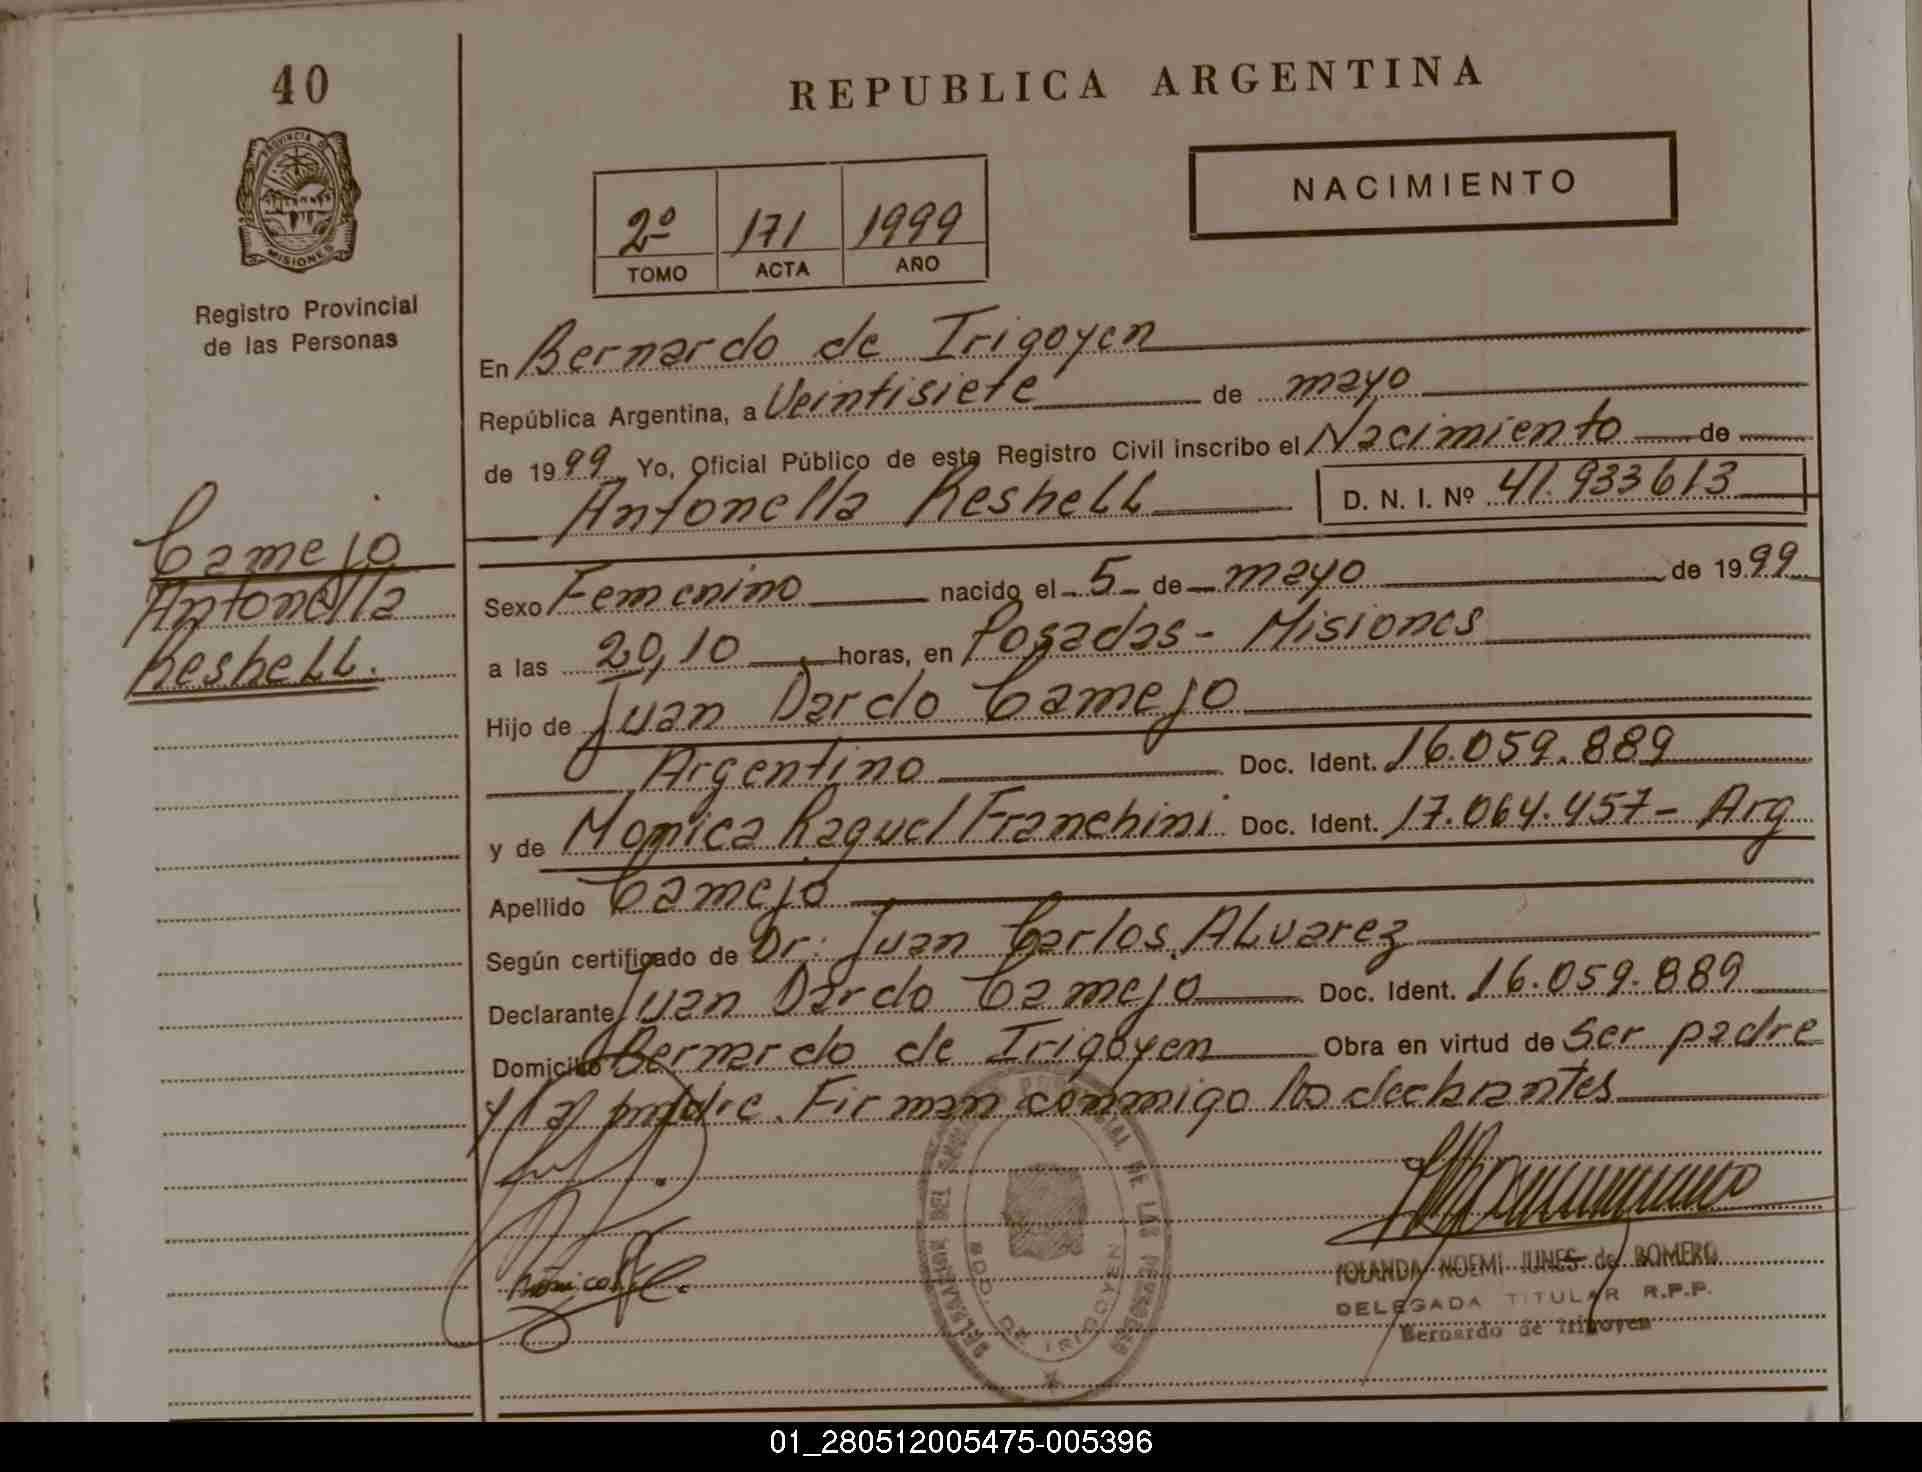 40
REPUBLICA ARGENTINA
PROVINCIA D
MISIONES
NACIMIENTO
2º 171 1999
TOMO ACTA AÑO
Registro Provincial
de las Personas
En Bernardo de Irigoyen
República Argentina, a Veintisiete de mayo
de 1999 Yo, Oficial Público de este Registro Civil inscribo el Nacimiento de
Antonella Keshell D. N. I. Nº 41.933613
Camejo
Antonella
Keshell.
Sexo Femenino nacido el 5 de mayo de 1999
a las 20,10 horas, en Posadas - Misiones
Hijo de Juan Dardo Camejo
Argentino Doc. Ident. 16.059.889
y de Monica Raquel Franchini Doc. Ident. 17.064.457 - Arg
Apellido Camejo
Según certificado de Dr. Juan Carlos Alvarez
Declarante Juan Dardo Camejo Doc. Ident. 16.059.889
Domicilio Bernardo de Irigoyen Obra en virtud de Ser padre
y la madre. Firman conmigo los declarantes
DE LAS
BDO. DE IRIGOYEN
Mónica
YOLANDA NOEMI JUNES de ROMERO
DELEGADA TITULAR R.P.P.
Bernardo de Irigoyen
01_280512005475-005396